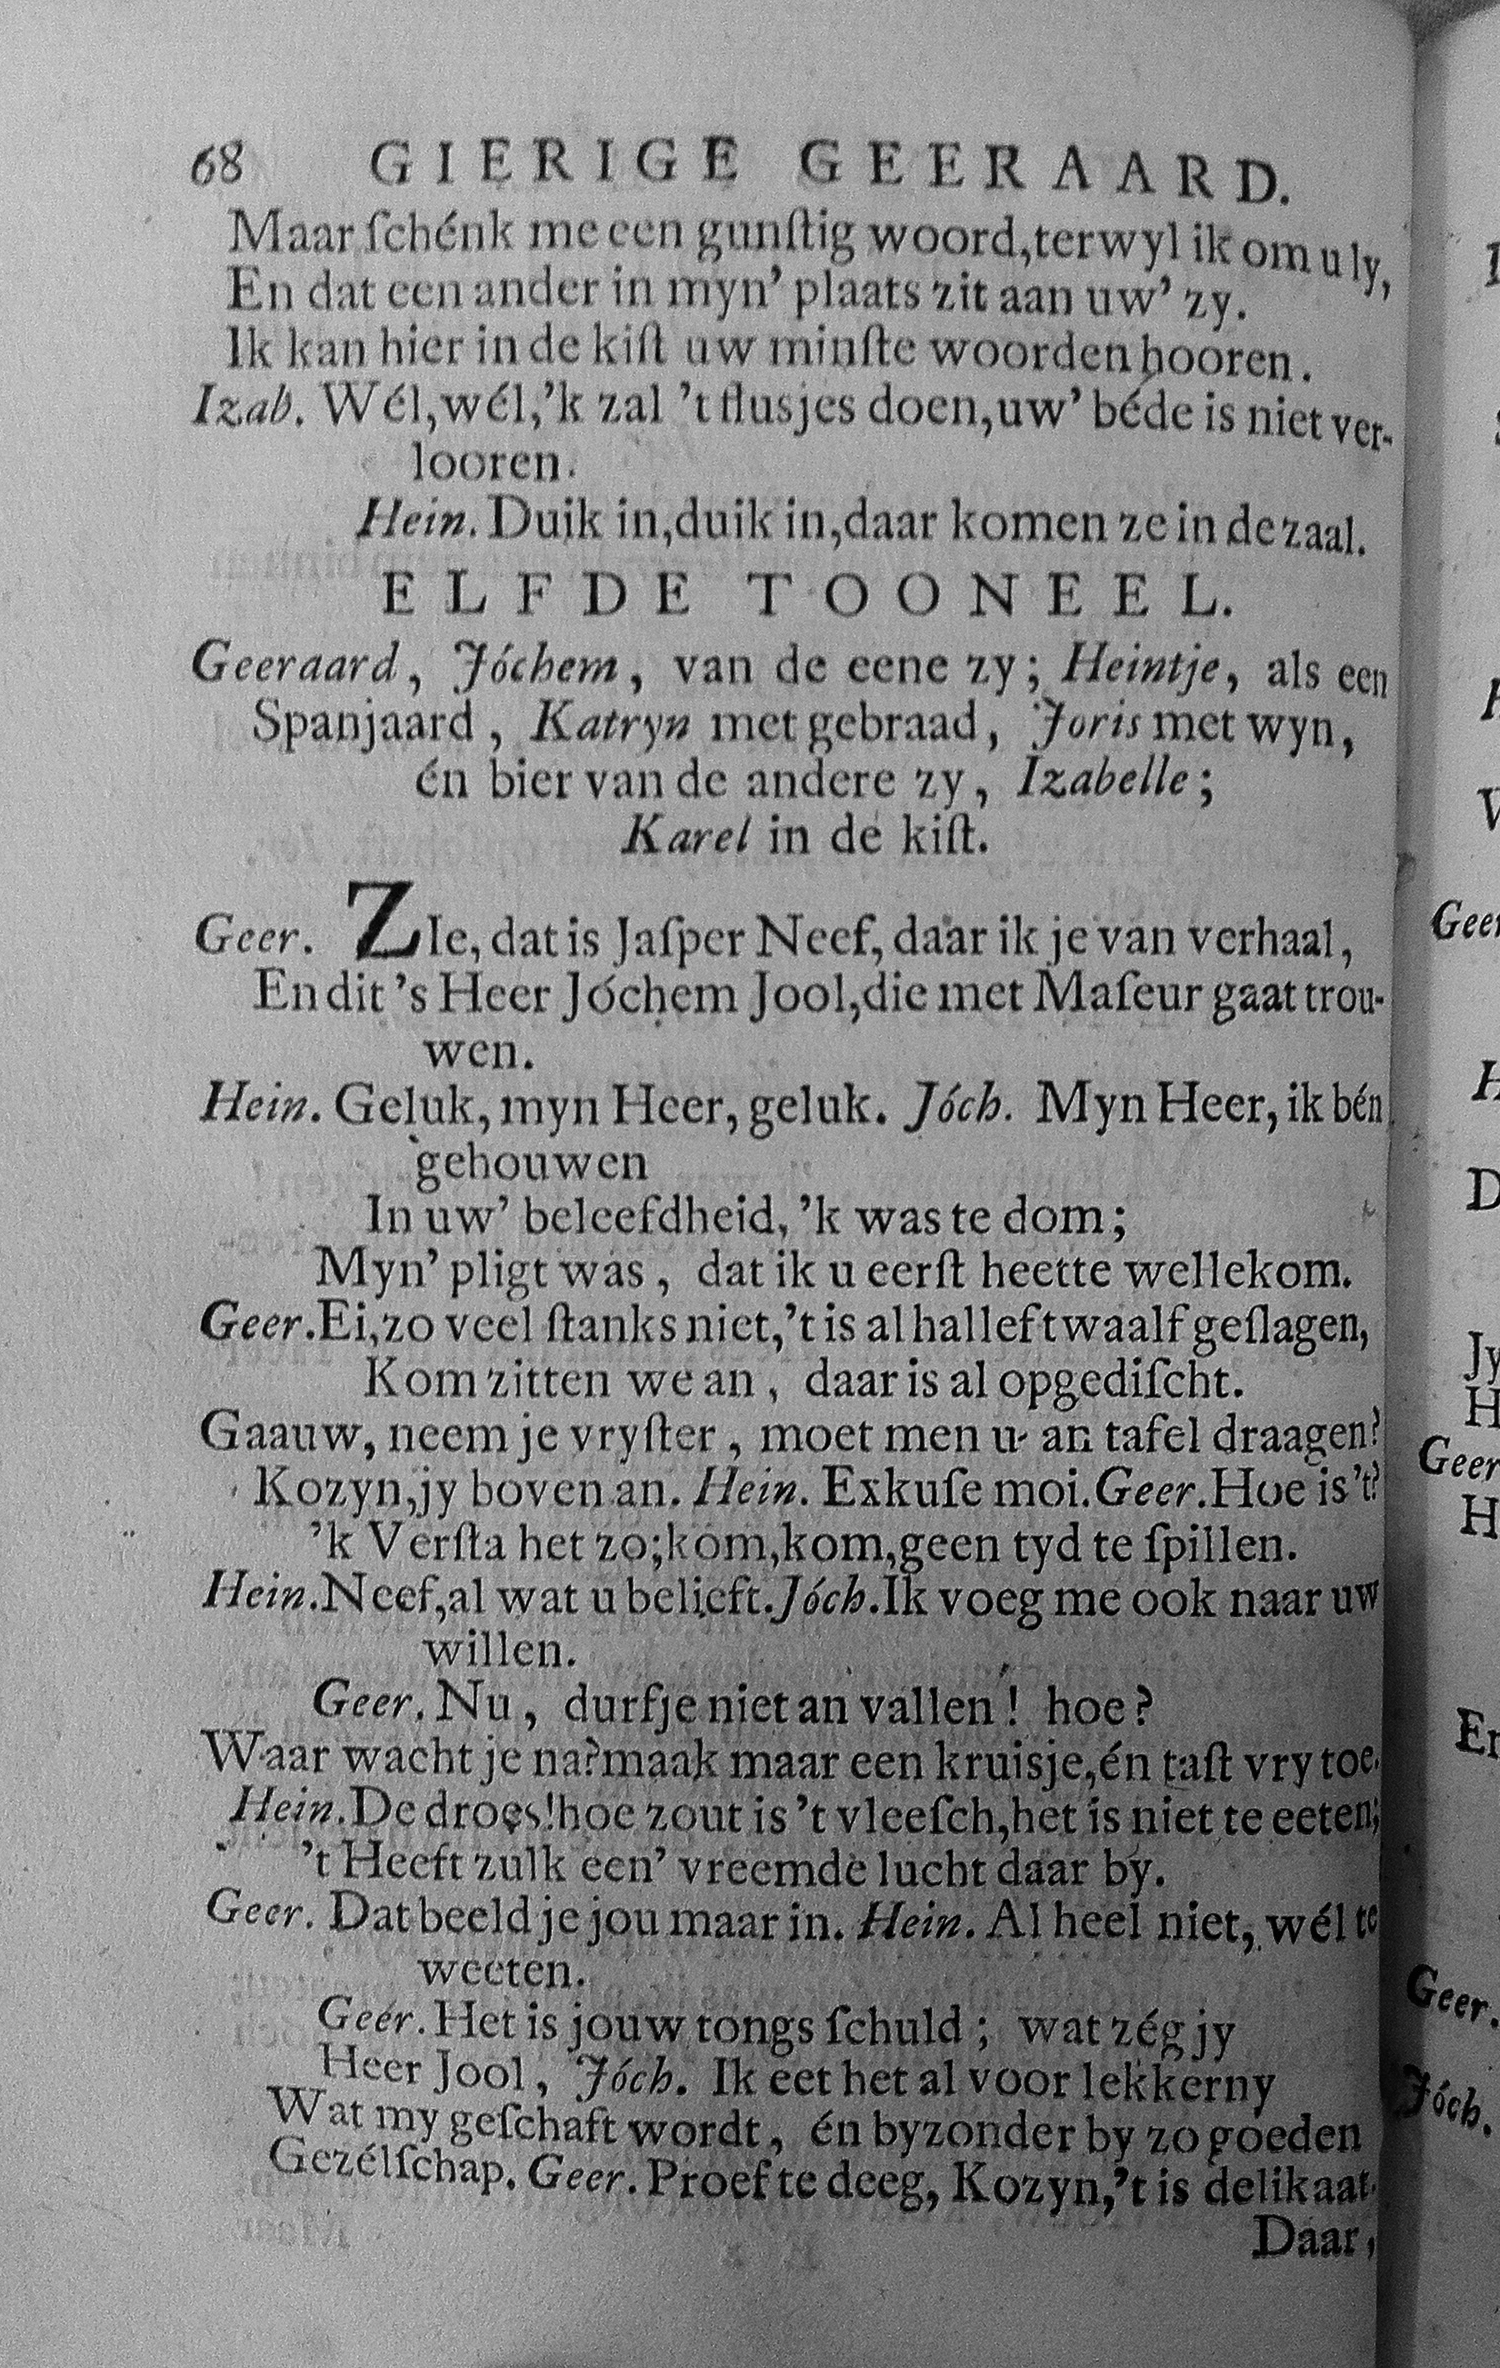 68 GIERIGE GEERAARD.
Maar ſchénk me een gunſtig woord, terwyl ik om u ly,
En dat een ander in myn’ plaats zit aan uw’ zy.
Ik kan hier in de kiſt uw minſte woorden hooren.
Izab. Wél, wél, ’k zal ’t flusjes doen, uw’ béde is niet ver-
looren.
Hein. Duik in, duik in, daar komen ze in de zaal.
ELFDE TOONEEL.
Geeraard, Jóchem, van de eene zy; Heintje, als een
Spanjaard, Katryn met gebraad, Joris met wyn,
én bier van de andere zy, Izabelle;
Karel in de kiſt.
Geer. ZIe, dat is Jaſper Neef, daar ik je van verhaal,
En dit ’s Heer Jóchem Jool, die met Maſeur gaat trou-
wen.
Hein. Geluk, myn Heer, geluk. Jóch. Myn Heer, ik bén
gehouwen
In uw’ beleefdheid, ’k was te dom;
Myn’ pligt was, dat ik u eerſt heette wellekom.
Geer. Ei, zo veel ſtanks niet, ’t is al hallef twaalf geſlagen,
Kom zitten we an, daar is al opgediſcht.
Gaauw, neem je vryſter, moet men u an tafel draagen?
Kozyn, jy boven an. Hein. Exkuſe moi. Geer. Hoe is ’t?
’k Verſta het zo; kom, kom, geen tyd te ſpillen.
Hein. Neef, al wat u belieft. Jóch. Ik voeg me ook naar uw
willen.
Geer. Nu, durfje niet an vallen! hoe?
Waar wacht je na? maak maar een kruisje, én taſt vry toe.
Hein. De droes! hoe zout is ’t vleeſch, het is niet te eeten;
’t Heeft zulk een’ vreemde lucht daar by.
Geer. Dat beeld je jou maar in. Hein. Al heel niet, wél te
weeten.
Geer. Het is jouw tongs ſchuld; wat zég jy
Heer Jool, Jóch. Ik eet het al voor lekkerny
Wat my geſchaft wordt, én byzonder by zo goeden
Gezélſchap. Geer. Proef te deeg, Kozyn, ’t is delikaat.
Daar,